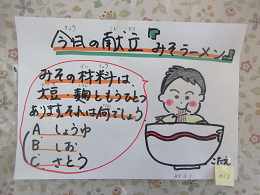 今日の献立 みそラーメン
みその材料は、
大豆・麹ともうひとつ
あります。それは何でしょう
A しょうゆ
B しお
C さとう
こたえ